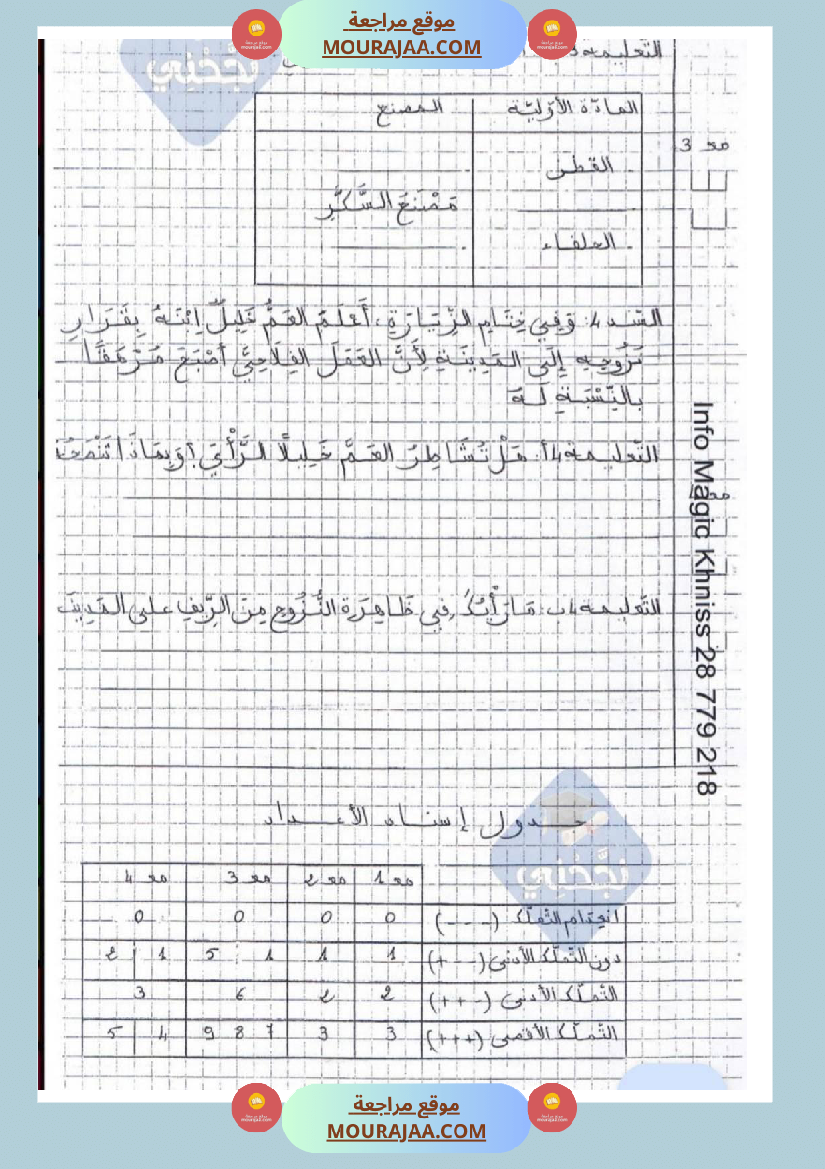 موقع مراجعة
MOURAJAA.COM
نجّحني
التعليمة
المادّة الأوّليّة المصنع
مع 3
القطن
مَصْنَعُ السُّكَّرِ
الحلفاء
السّند 4: وَفِي خِتَامِ الزِّيَارَةِ، أَعْلَمَ العَمُّ خَلِيلٌ اِبْنَهُ بِقَرَارِ
نُزُوحِهِ إِلَى المَدِينَةِ لِأَنَّ العَمَلَ الفِلَاحِيَّ أَصْبَحَ مُرْهِقًا
بِالنِّسْبَةِ لَهُ
التّعليمة 4أ: هَلْ تُشَاطِرُ العَمَّ خَلِيلًا الرَّأْيَ؟ وَبِمَاذَا تَنْصَحُهُ
مع 4
التّعليمة 4ب: مَا رَأْيُكَ فِي ظَاهِرَةِ النُّزُوحِ مِنَ الرِّيفِ على المَدِينَة
Info Magic Khniss 28 779 218
جدول إسناد الأعداد
نجّحني
مع 1 مع 2 مع 3 مع 4
انعدام التملّك (---) 0 0 0 0
دون التملّك الأدنى (+--) 1 1 1 5 1 2
التّملّك الأدنى (++-) 2 2 6 3
التّملّك الأقصى (+++) 3 3 7 8 9 4 5
موقع مراجعة
MOURAJAA.COM